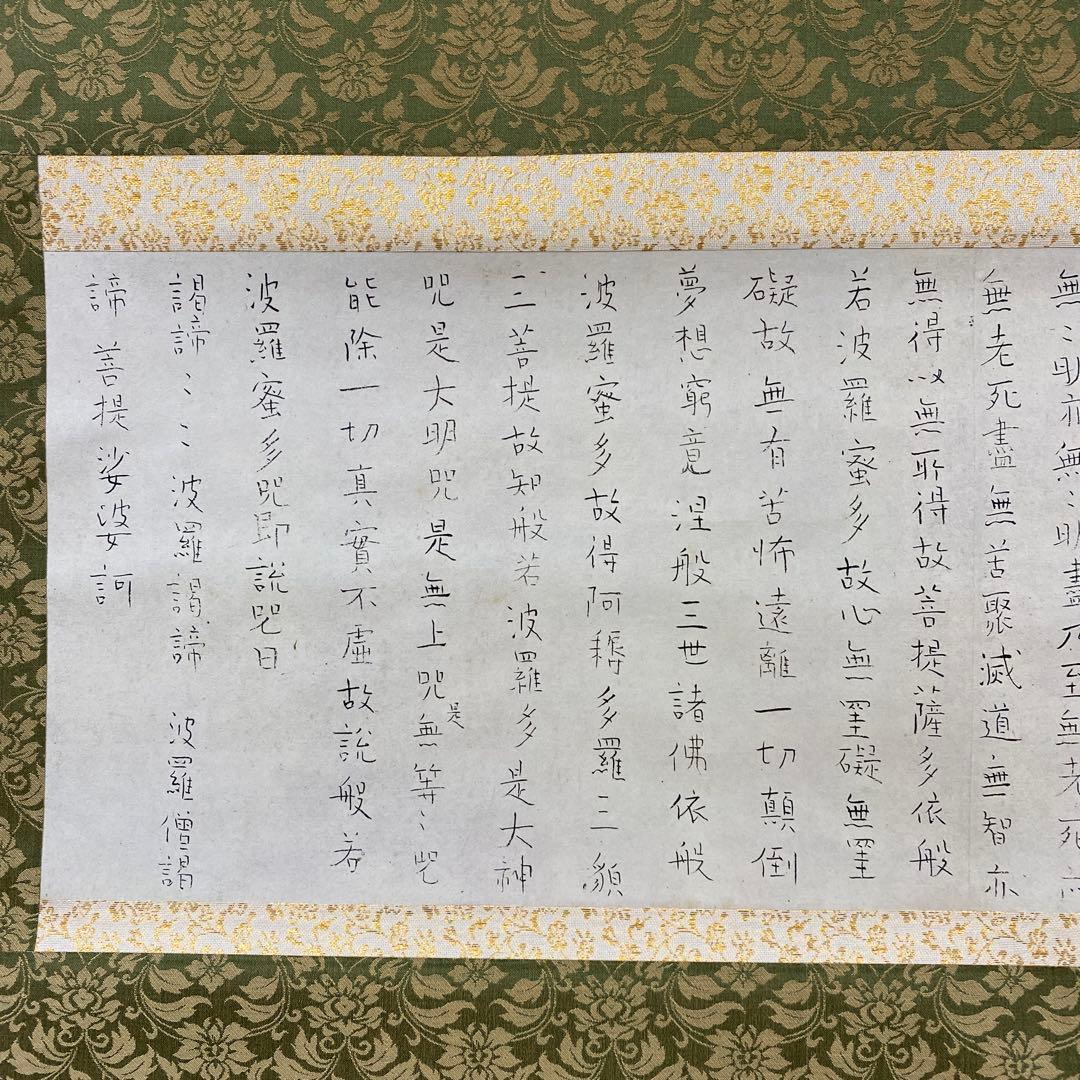 無〻明亦無〻明盡乃至無老死亦
無老死盡無苦聚滅道無智亦
無得以無所得故菩提薩多依般
若波羅蜜多故心無罣礙無罣
礙故無有苦怖遠離一切顛倒
夢想窮竟涅般三世諸佛依般
波羅蜜多故得阿耨多羅三藐
三菩提故知般若波羅多是大神
咒是大明咒是無上咒是無等〻咒
能除一切真實不虛故説般若
波羅蜜多咒即説咒曰
謁諦〻〻波羅謁諦 波羅僧謁
諦 菩提娑婆訶